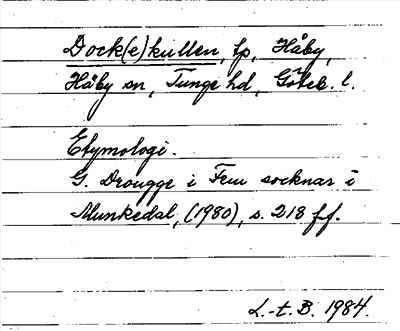 Dock(e)kullen, tp, Håby,
Håby sn, Tunge hd, Göteb. l.
Etymologi.
G. Drougge i Fem socknar i
Munkedal, (1980), s. 218 ff.
L.-t. B. 1984.